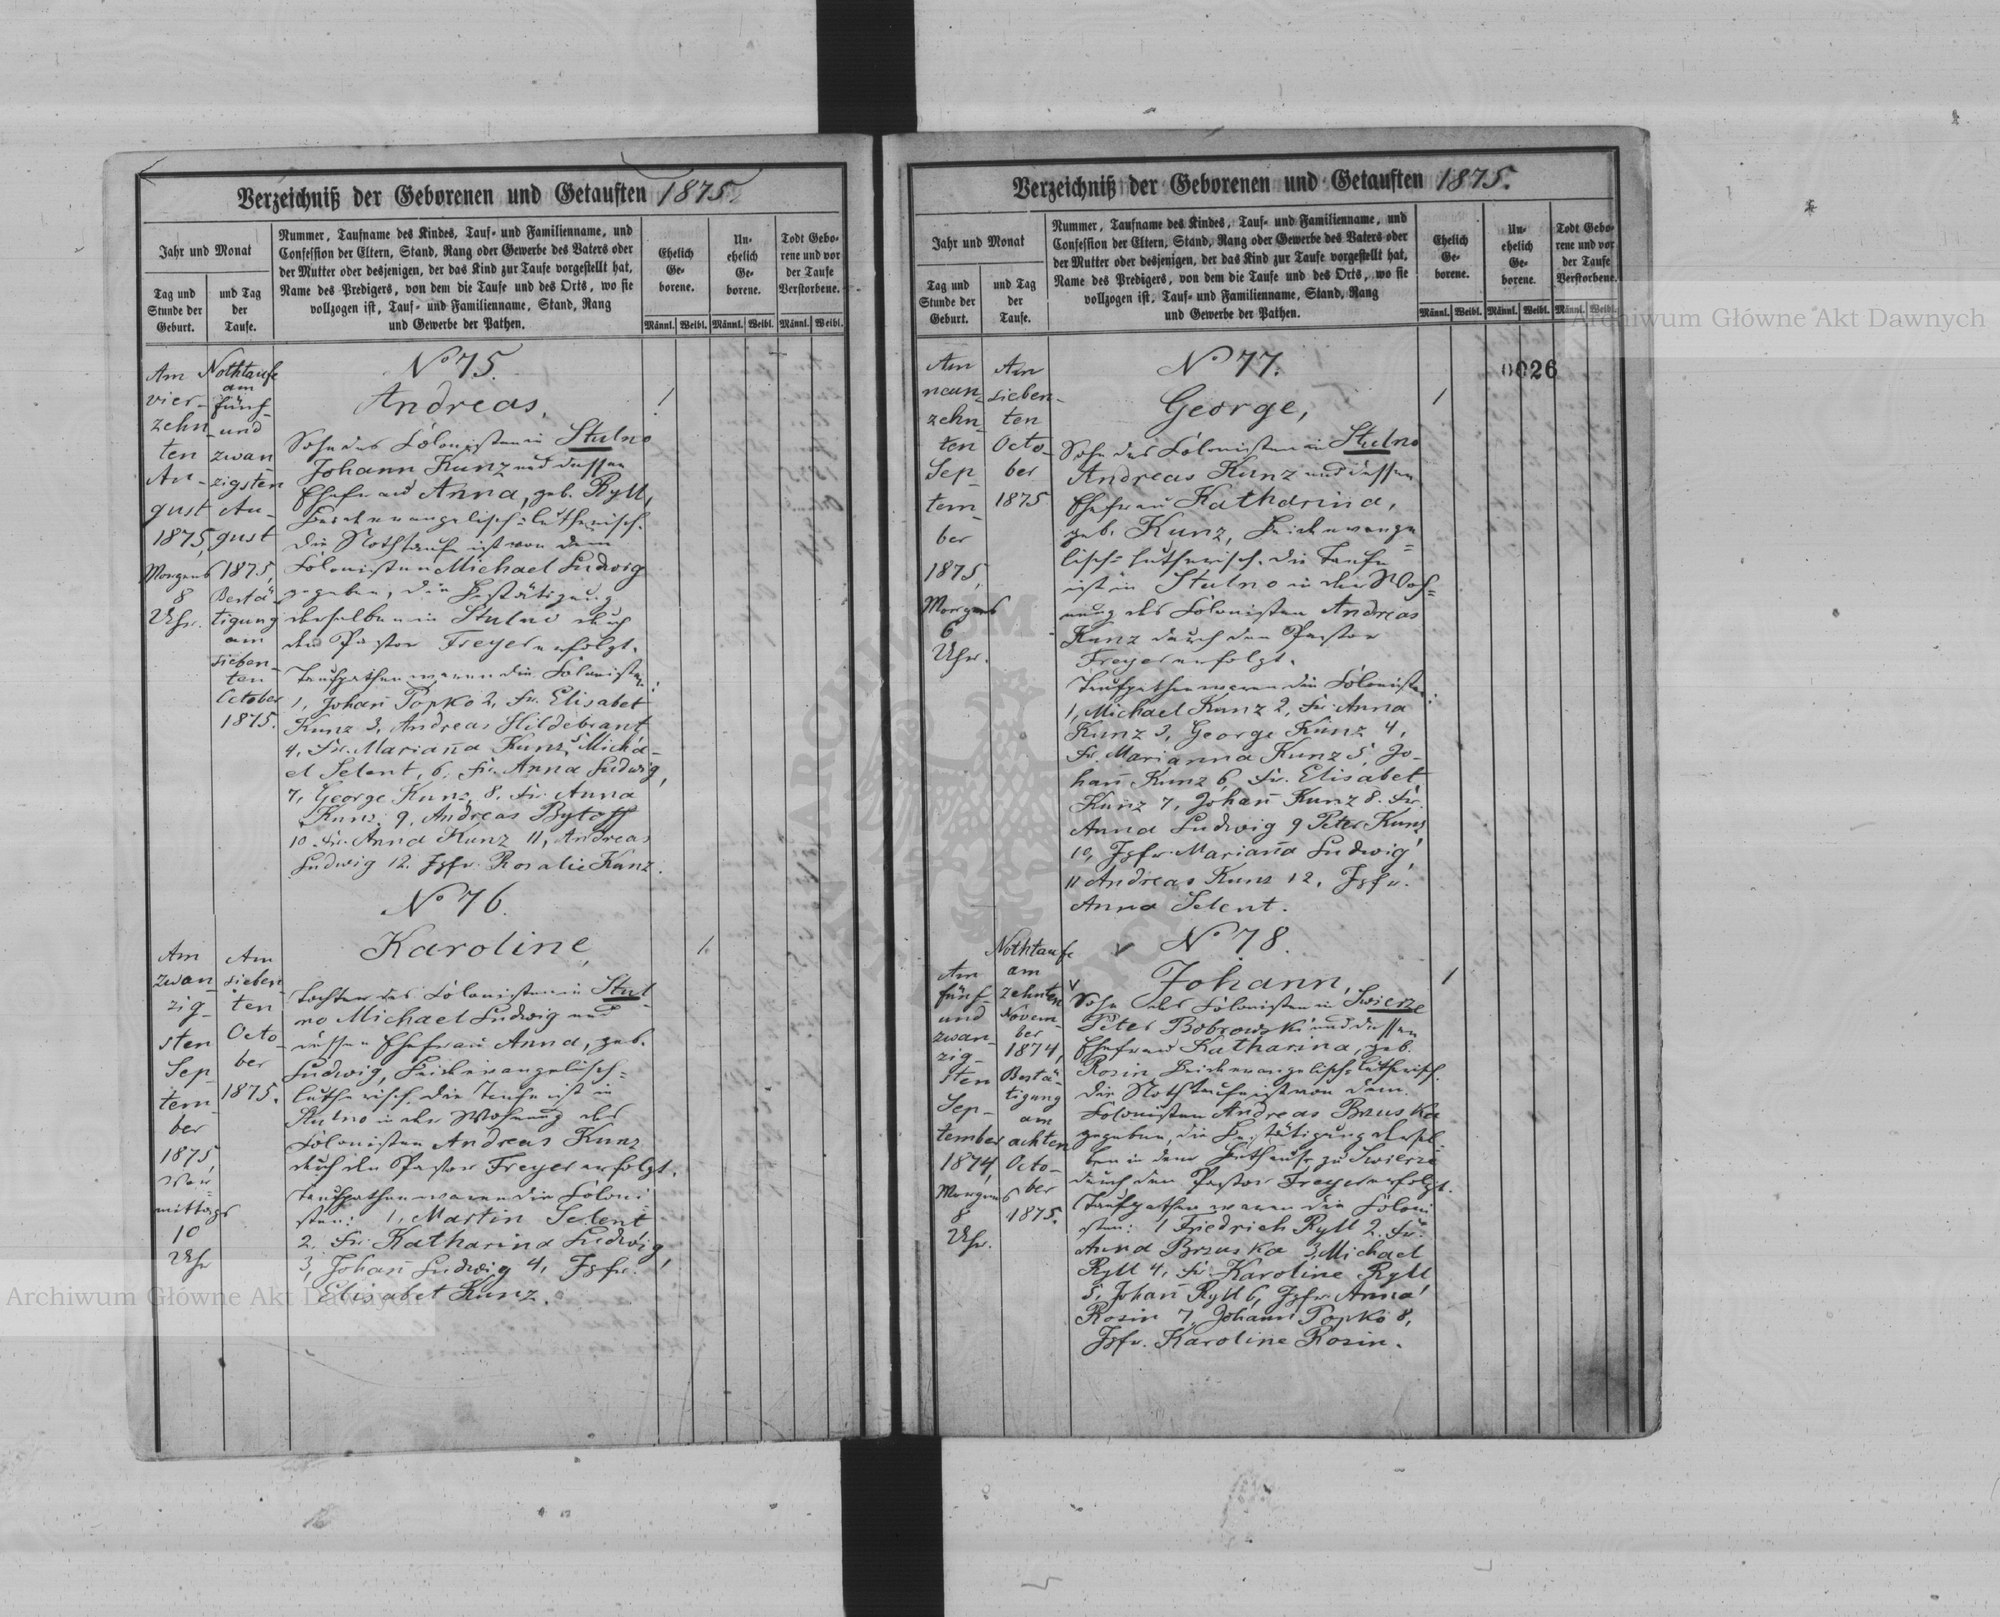 Verzeichniß der Geborenen und Getauften 1875.
Jahr und Monat
Tag und
Stunde der
Geburt.
und Tag
der
Taufe.
Nummer, Taufname des Kindes, Tauf- und Familienname, und
Confession der Eltern, Stand, Rang oder Gewerbe des Vaters oder
der Mutter oder desjenigen, der das Kind zur Taufe vorgestellt hat,
Name des Predigers, von dem die Taufe und des Orts, wo sie
vollzogen ist, Tauf- und Familienname, Stand, Rang
und Gewerbe der Pathen.
Ehelich
Ge-
borene.
Un-
ehelich
Ge-
borene.
Todt Gebo-
rene und vor
der Taufe
Verstorbene.
Männl. Weibl. Männl. Weibl. Männl. Weibl.
Am
vier-
zehn-
ten
Au-
gust
1875,
Morgens
8
Uhr.
Nothtaufe
am
fünf-
und
zwan-
zigsten
Au-
gust
1875,
Bestä-
tigung
am
sieben-
ten
October
1875.
No 75.
Andreas,
Sohn des Colonisten in Stulno
Johann Kunz und dessen
Ehefrau Anna, geb. Ryll,
Beide evangelisch-lutherisch.
Die Nothtaufe ist von dem
Colonisten Michael Ludwig
gegeben, die Bestätigung
derselben in Stulno durch
den Pastor Freyer erfolgt.
Taufpathen waren die Colonisten:
1, Johan̄ Popko 2, Fr. Elisabet
Kunz 3, Andreas Hildebrant
4, Fr. Marian̄a Kunz 5 Micha-
el Selent, 6, Fr. Anna Ludwig,
7, George Kunz, 8, Fr. Anna
Kunz, 9, Andreas Bytoff
10. Fr. Anna Kunz 11, Andreas
Ludwig 12. Jgfr. Rosalie Kunz.
1
Am
zwan-
zig-
sten
Sep-
tem-
ber
1875,
Vor-
mittags
10
Uhr
Am
sieben-
ten
Octo-
ber
1875.
No 76.
Karoline,
Tochter des Colonisten in Stul-
no Michael Ludwig und
dessen Ehefrau Anna, geb.
Ludwig, Beide evangelisch-
lutherisch. Die Taufe ist in
Stulno in der Wohnung des
Colonisten Andreas Kunz
durch den Pastor Freyer erfolgt.
Taufpathen waren die Coloni-
sten: 1, Martin Selent
2. Fr. Katharina Ludwig,
3, Johan̄ Ludwig 4, Jgfr.
Elisabet Kunz.
1.
Verzeichniß der Geborenen und Getauften 1875.
Jahr und Monat
Tag und
Stunde der
Geburt.
und Tag
der
Taufe.
Nummer, Taufname des Kindes, Tauf- und Familienname, und
Confession der Eltern, Stand, Rang oder Gewerbe des Vaters oder
der Mutter oder desjenigen, der das Kind zur Taufe vorgestellt hat,
Name des Predigers, von dem die Taufe und des Orts, wo sie
vollzogen ist, Tauf- und Familienname, Stand, Rang
und Gewerbe der Pathen.
Ehelich
Ge-
borene.
Un-
ehelich
Ge-
borene.
Todt Gebo-
rene und vor
der Taufe
Verstorbene.
Männl. Weibl. Männl. Weibl. Männl. Weibl.
0026
Am
neun-
zehn-
ten
Sep-
tem-
ber
1875,
Morgens
6
Uhr.
Am
sieben-
ten
Octo-
ber
1875
No 77.
George,
Sohn des Colonisten in Stulno
Andreas Kunz und dessen
Ehefrau Katharina,
geb. Kunz, Beide evange-
lisch-lutherisch. Die Taufe
ist in Stulno in der Woh-
nung des Colonisten Andreas
Kunz durch den Pastor
Freyer erfolgt.
Taufpathen waren die Colonisten:
1, Michael Kunz 2, Fr. Anna
Kunz 3, George Kunz 4,
Fr. Marianna Kunz 5, Jo-
han̄ Kunz 6, Fr. Elisabet
Kunz 7, Johan̄ Kunz 8. Fr.
Anna Ludwig 9 Peter Kunz
10, Jgfr. Marian̄a Ludwig,
11 Andreas Kunz 12, Jgfr.
Anna Selent.
1
Am
fünf-
und
zwan-
zig-
sten
Sep-
tember
1874,
Morgens
8
Uhr.
Nothtaufe
am
zehnten
Novem-
ber
1874,
Bestä-
tigung
am
achten
Octo-
ber
1875.
No 78.
Johann,
Sohn des Colonisten in Swierze
Peter Bobrowski und dessen
Ehefrau Katharina, geb.
Rosin Beide evangelisch-lutherisch.
Die Nothtaufe ist von dem
Colonisten Andreas Brzuska
gegeben, die Bestätigung dersel-
ben in dem Bethause zu Swierze
durch den Pastor Freyer erfolgt.
Taufpathen waren die Coloni-
sten: 1 Friedrich Ryll 2. Fr.
Anna Brzuska 3, Michael
Ryll 4, Fr. Karoline Ryll
5, Johan̄ Ryll 6, Jgfr. Anna
Rosin 7, Johann Popko 8,
Jgfr. Karoline Rosin.
1
Archiwum Główne Akt Dawnych
Archiwum Główne Akt Dawnych